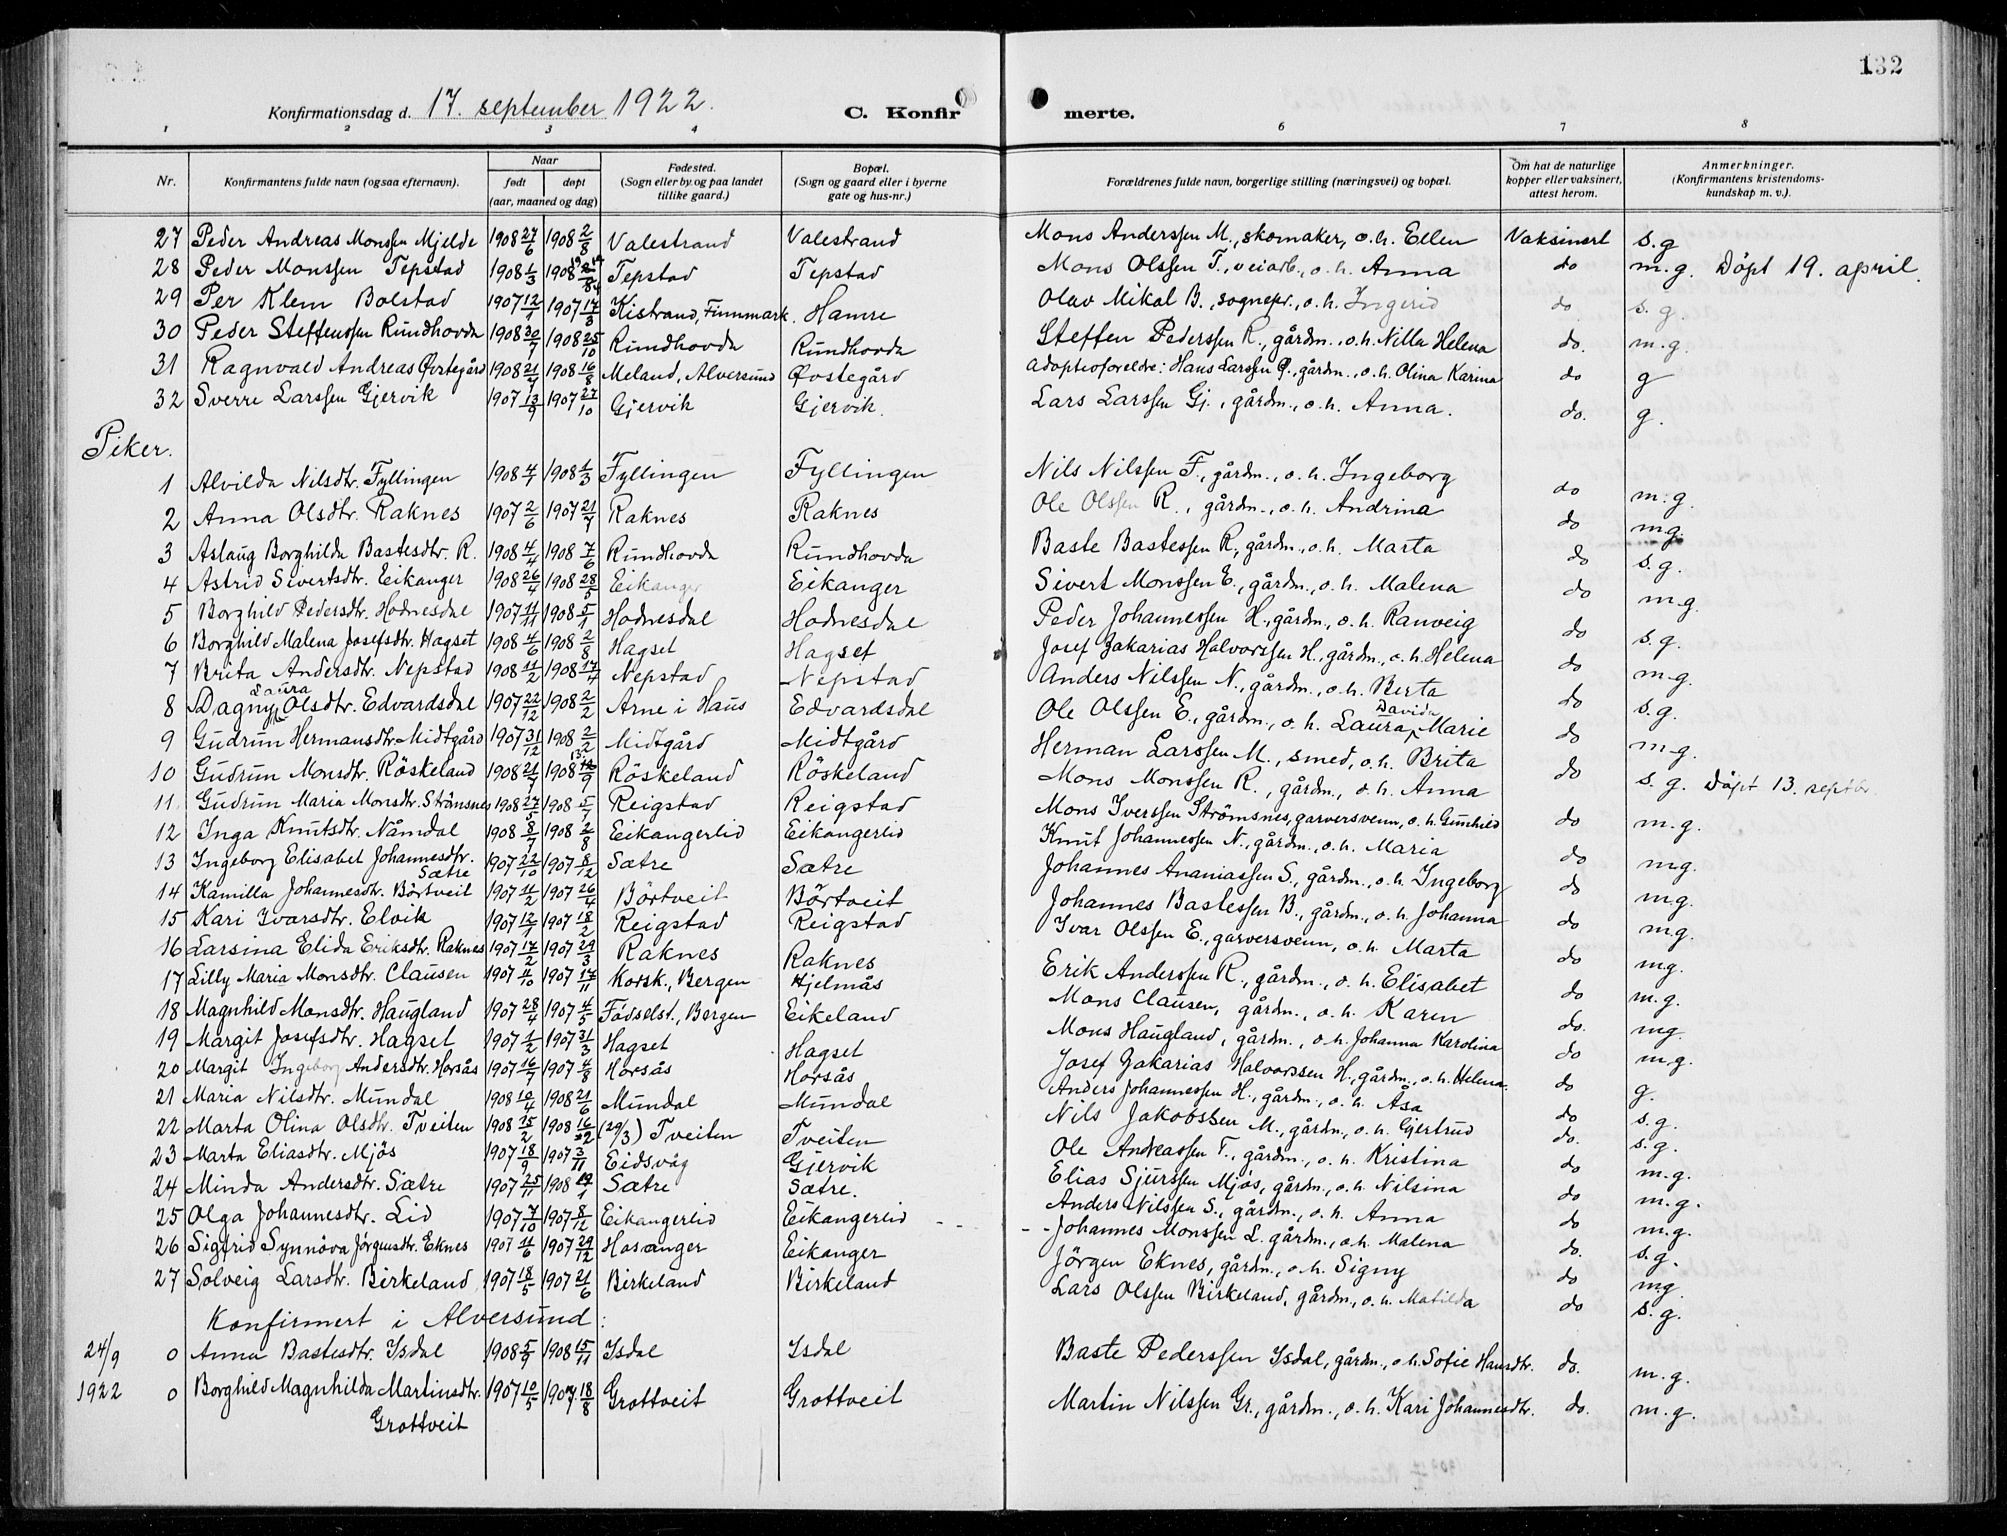 132
Konfirmationsdag d. 17. september 1922. C. Konfirmerte.
1 2 3 4 6 7 8
Nr. Konfirmantens fulde navn (ogsaa efternavn). Naar født døpt (aar, maaned og dag) Fødested. (Sogn eller by og paa landet tillike gaard.) Bopæl. (Sogn og gaard eller i byerne gate og hus-nr.) Forældrenes fulde navn, borgerlige stilling (næringsvei) og bopæl. Om hat de naturlige kopper eller vaksinert, attest herom. Anmerkninger. (Konfirmantens kristendomskundskap m. v.).
27 Peder Andreas Monssen Mjelde 1908 27/6 1908 2/8 Valestrand Valestrand Mons Anderssen M., skomaker, o.h. Ellen Vaksinert s.g
28 Peder Monssen Tepstad 1908 1/3 1908 Tepstad Tepstad Mons Olssen T., veiarb., o.h. Anna do m.g. Döpt 19. april.
29 Per Klem Bolstad 1907 12/1 1907 17/3 Kistrand, Finnmark. Hamre Olav Mikal B., sognepr., o.h. Ingerid do. s.g.
30 Peder Steffenssen Rundhovda 1908 30/7 1908 25/10 Rundhovda Rundhovda Steffen Pederssen R., gårdm., o.h. Nilla Helena do. m.g.
31 Ragnvald Andreas Øvstegård 1908 21/7 1908 16/8 Meland, Alversund Øvstegård Adoptivforeldre: Hans Larssen Ø., gårdm., o.h. Olina Karina do g
32 Sverre Larssen Gjervik 1907 13/9 1907 27/10 Gjervik Gjervik. Lars Larssen Gj., gårdm., o.h. Anna. do. g.
Piker.
1 Alvilda Nilsdtr. Fyllingen 1908 4/1 1908 1/3 Fyllingen Fyllingen Nils Nilssen F., gårdm., o.h. Ingeborg do m.g.
2 Anna Olsdtr. Raknes 1907 2/6 1907 21/7 Raknes Raknes Ole Olssen R., gårdm., o.h. Andrina do m.g.
3 Aslaug Borghilda Bastesdtr. R. 1908 4/4 1908 7/6 Rundhovda Rundhovda Baste Bastessen R., gårdm., o.h. Marta do s.g.
4 Astrid Sivertsdtr. Eikanger 1908 26/4 1908 28/5 Eikanger Eikanger Sivert Monssen E., gårdm., o.h. Malena do m.g.
5 Borghild Pedersdtr. Hodnesdal 1907 11/11 1908 5/1 Hodnesdal Hodnesdal Peder Johannessen H., gårdm., o.h. Ranveig do s.g.
6 Borghild Malena Josefsdtr. Hagset 1908 4/6 1908 2/8 Hagset Hagset Josef Zakarias Halvorssen H., gårdm., o.h. Helena do m.g.
7 Brita Andersdtr. Nepstad 1908 11/2 1908 17/4 Nepstad Nepstad Anders Nilssen N., gårdm., o.h. Berta do s.g.
8 Dagny Laura Olsdtr. Edvardsdal 1907 22/12 1908 2/2 Arne i Haus Edvardsdal Ole Olssen E., gårdm., o.h. Laura Davida Marie do m.g.
9 Gudrun Hermansdtr. Midtgård 1907 31/12 1908 2/2 Midtgård Midtgård Herman Larssen M., smed, o.h. Brita do
10 Gudrun Monsdtr. Röskeland 1908 21/7 1908 13/9 Röskeland Röskeland Mons Monssen R., gårdm., o.h. Anna do s.g. Döpt 13. septbr.
11 Gudrun Maria Monsdtr. Strömsnes 1908 27/5 1908 5/7 Reigstad Reigstad Mons Iverssen Strömsnes, garversvenn, o.h. Gunhild do m.g.
12 Inga Knutsdtr. Nåmdal 1908 8/7 1908 2/8 Eikangerlid Eikangerlid Knut Johannessen N., gårdm., o.h. Maria do m.g.
13 Ingeborg Elisabet Johannesdtr. Sætre 1907 22/10 1907 8/12 Sætre Sætre Johannes Ananiassen S., gårdm., o.h. Ingeborg do m.g.
14 Kamilla Johannesdtr. Börtveit 1907 11/2 1907 26/4 Börtveit Börtveit Johannes Bastessen B., gårdm., o.h. Johanna do m.g.
15 Kari Ivarsdtr. Elvik 1907 12/1 1907 18/2 Reigstad Reigstad Ivar Olssen E., garversvenn, o.h. Marta do m.g.
16 Larsina Elida Eriksdtr. Raknes 1907 17/2 1907 29/3 Raknes Raknes Erik Anderssen R., gårdm., o.h. Elisabet do m.g.
17 Lilly Maria Monsdtr. Clausen 1907 11/10 1907 17/11 Korsk., Bergen Hjelmås Mons Clausen, gårdm., o.h. Karen do. mg
18 Magnhild Monsdtr. Haugland 1907 28/4 1907 4/5 Födselst., Bergen Eikeland Mons Haugland, gårdm., o.h. Johanna Karolina do m.g.
19 Margit Josefsdtr. Hagset 1907 1/2 1907 31/3 Hagset Hagset Josef Zakarias Halvorssen H., gårdm., o.h. Helena. do g.
20 Margit Ingeborg Andersdtr. Horsås 1907 16/7 1907 4/8 Horsås Horsås Anders Johannessen H., gårdm., o.h. Åsa do s.g.
21 Maria Nilsdtr. Mundal 1908 10/4 1908 21/6 Mundal Mundal Nils Jakobssen M., gårdm., o.h. Gjertrud do. s.g.
22 Marta Olina Olsdtr. Tveiten 1908 15/2 1908 16/2 (29/3) Tveiten Tveiten Ole Andreassen T., gårdm., o.h. Kristina do m.g.
23 Marta Eliasdtr. Mjös 1907 18/9 1907 3/11 Eidsvåg Gjervik Elias Sjurssen Mjös, gårdm., o.h. Nilsina do m.g.
24 Minda Andersdtr. Sætre 1907 25/11 1908 19/1 Sætre Sætre. Anders Nilssen S., gårdm., o.h. Anna do m.g.
25 Olga Johannesdtr. Lid 1907 7/10 1907 8/12 Eikangerlid Eikangerlid - - - - Johannes Monssen L. gårdm., o.h. Malena do. s.g.
26 Sigfrid Synnöva Jörgensdtr. Eknes 1907 11/6 1907 29/12 Hosanger Eikanger Jörgen Eknes, gårdm., o.h. Signy do mg.
27 Solveig Larsdtr. Birkeland 1907 18/5 1907 21/6 Birkeland Birkeland Lars Olssen Birkeland, gårdm., o.h. Matilda do s.g.
Konfirmert i Alversund:
24/9 0 Anna Bastesdtr. Isdal 1908 5/9 1908 15/11 Isdal Isdal Baste Pederssen Isdal, gårdm., o.h. Sofie Hansdtr. do. m.g.
1922 0 Borghild Magnhilda Martinsdtr. 1907 10/5 1907 18/8 Grottveit Grottveit Martin Nilssen Gr., gårdm., o.h. Kari Johannesdtr. do. m.g.
Grottveit